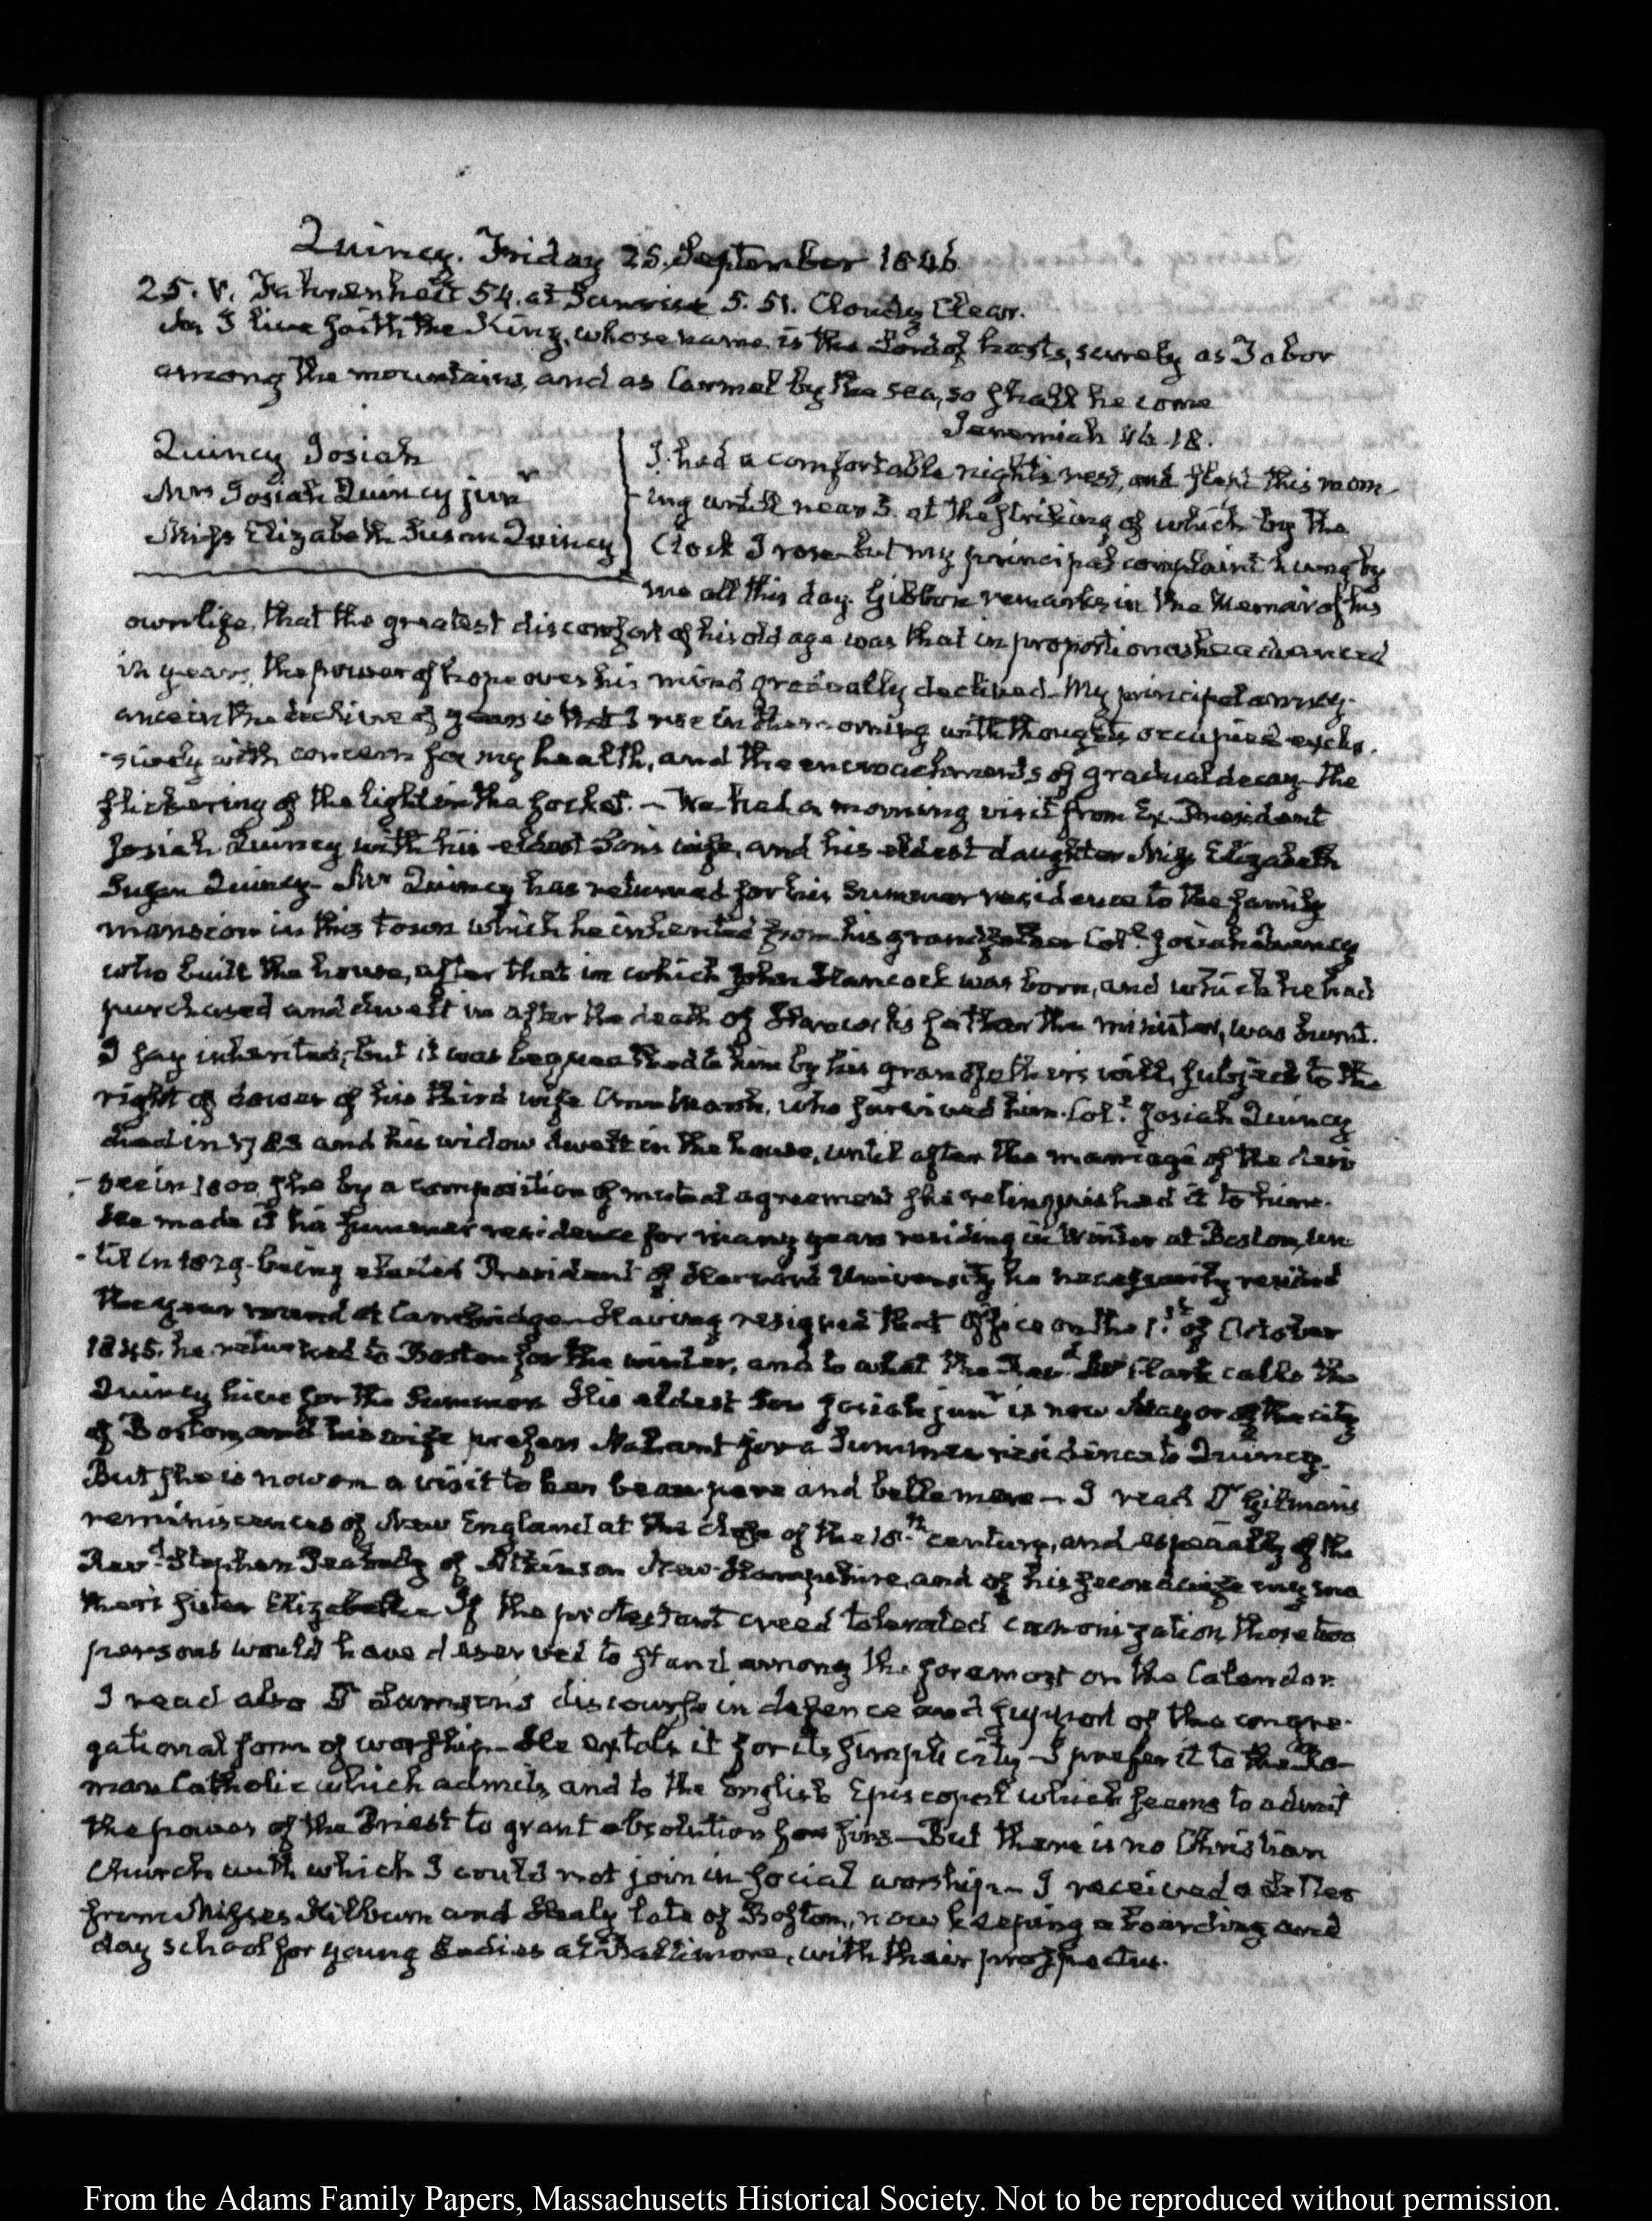 Quincy. Friday 25. September 1846.
25. V. Fahrenheit 54. at Sunrise 5. 51. Cloudy Clear.
As I live saith the King, whose name is the Lord of hosts, surely as Tabor
among the mountains, and as Carmel by the sea, so shall he come
Jeremiah 46. 18.
Quincy Josiah
Mrs Josiah Quincy junr
Miss Elizabeth Susan Quincy
I had a comfortable night's rest, and slept this morn-
-ing until near 5. at the striking of which by the
Clock I rose but my principal complaint hung by
me all this day. Gibbon remarks in the Memoir of his
own life, that the greatest discomfort of his old age was that in proportion as he advanced
in years, the power of hope over his mind gradually declined. My principal annoy-
ance in the decline of years is that I rise in the morning with thoughts occupied exclu-
-sively with concern for my health, and the encroachments of gradual decay the
flickering of the light in the socket. – We had a morning visit from Ex-President
Josiah Quincy with his eldest Son's wife, and his eldest daughter Miss Elizabeth
Susan Quincy – Mr Quincy has returned for his Summer residence to the family
mansion in this town which he inherited from his grandfather Coll. Josiah Quincy
who built the house, after that in which John Hancock was born, and which he had
purchased and dwelt in after the death of Hancock's father the minister, was burnt.
I say inherited, but it was bequeathed to him by his grandfather's will, subject to the
right of dower of his third wife Ann Marsh, who survived him. Coll. Josiah Quincy
died in 1783 and his widow dwelt in the house, until after the marriage of the devi
-see in 1800 she by a composition of mutual agreement she relinquished it to him.
He made it his summer residence for many years residing in Winter at Boston, un
-til in 1829 being elected President of Harvard University he necessarily resided
the year round at Cambridge. Having resigned that office on the 1st. of October
1845. he returned to Boston for the winter, and to what the Revd. Mr Clark calls the
Quincy hive for the Summer. His eldest Son Josiah junr is now Mayor of the city
of Boston, and his wife prefers Nahant for a Summer residence to Quincy.
But she is now on a visit to her beau pere and belle mere – I read Dr Gilman's
reminiscences of New England at the close of the 18th. century, and especially of the
Revd. Stephen Peabody of Atkinson New-Hampshire, and of his second wife my mo
ther's sister Elizabeth. If the protestant creed tolerated canonization, those two
persons would have deserved to stand among the foremost on the Calendar.
I read also Dr Lamson's discourse in defence and support of the congre-
gational form of worship – He extols it for its simplicity – I prefer it to the Ro-
man Catholic which admits, and to the English Episcopal which seems to admit
the power of the Priest to grant absolution for sins – But there is no Christian
Church with which I could not join in social worship – I received a letter
from Misses Kilburn and Healy late of Boston, now keeping a boarding and
day school for young Ladies at Baltimore, with their prospectus.
From the Adams Family Papers, Massachusetts Historical Society. Not to be reproduced without permission.